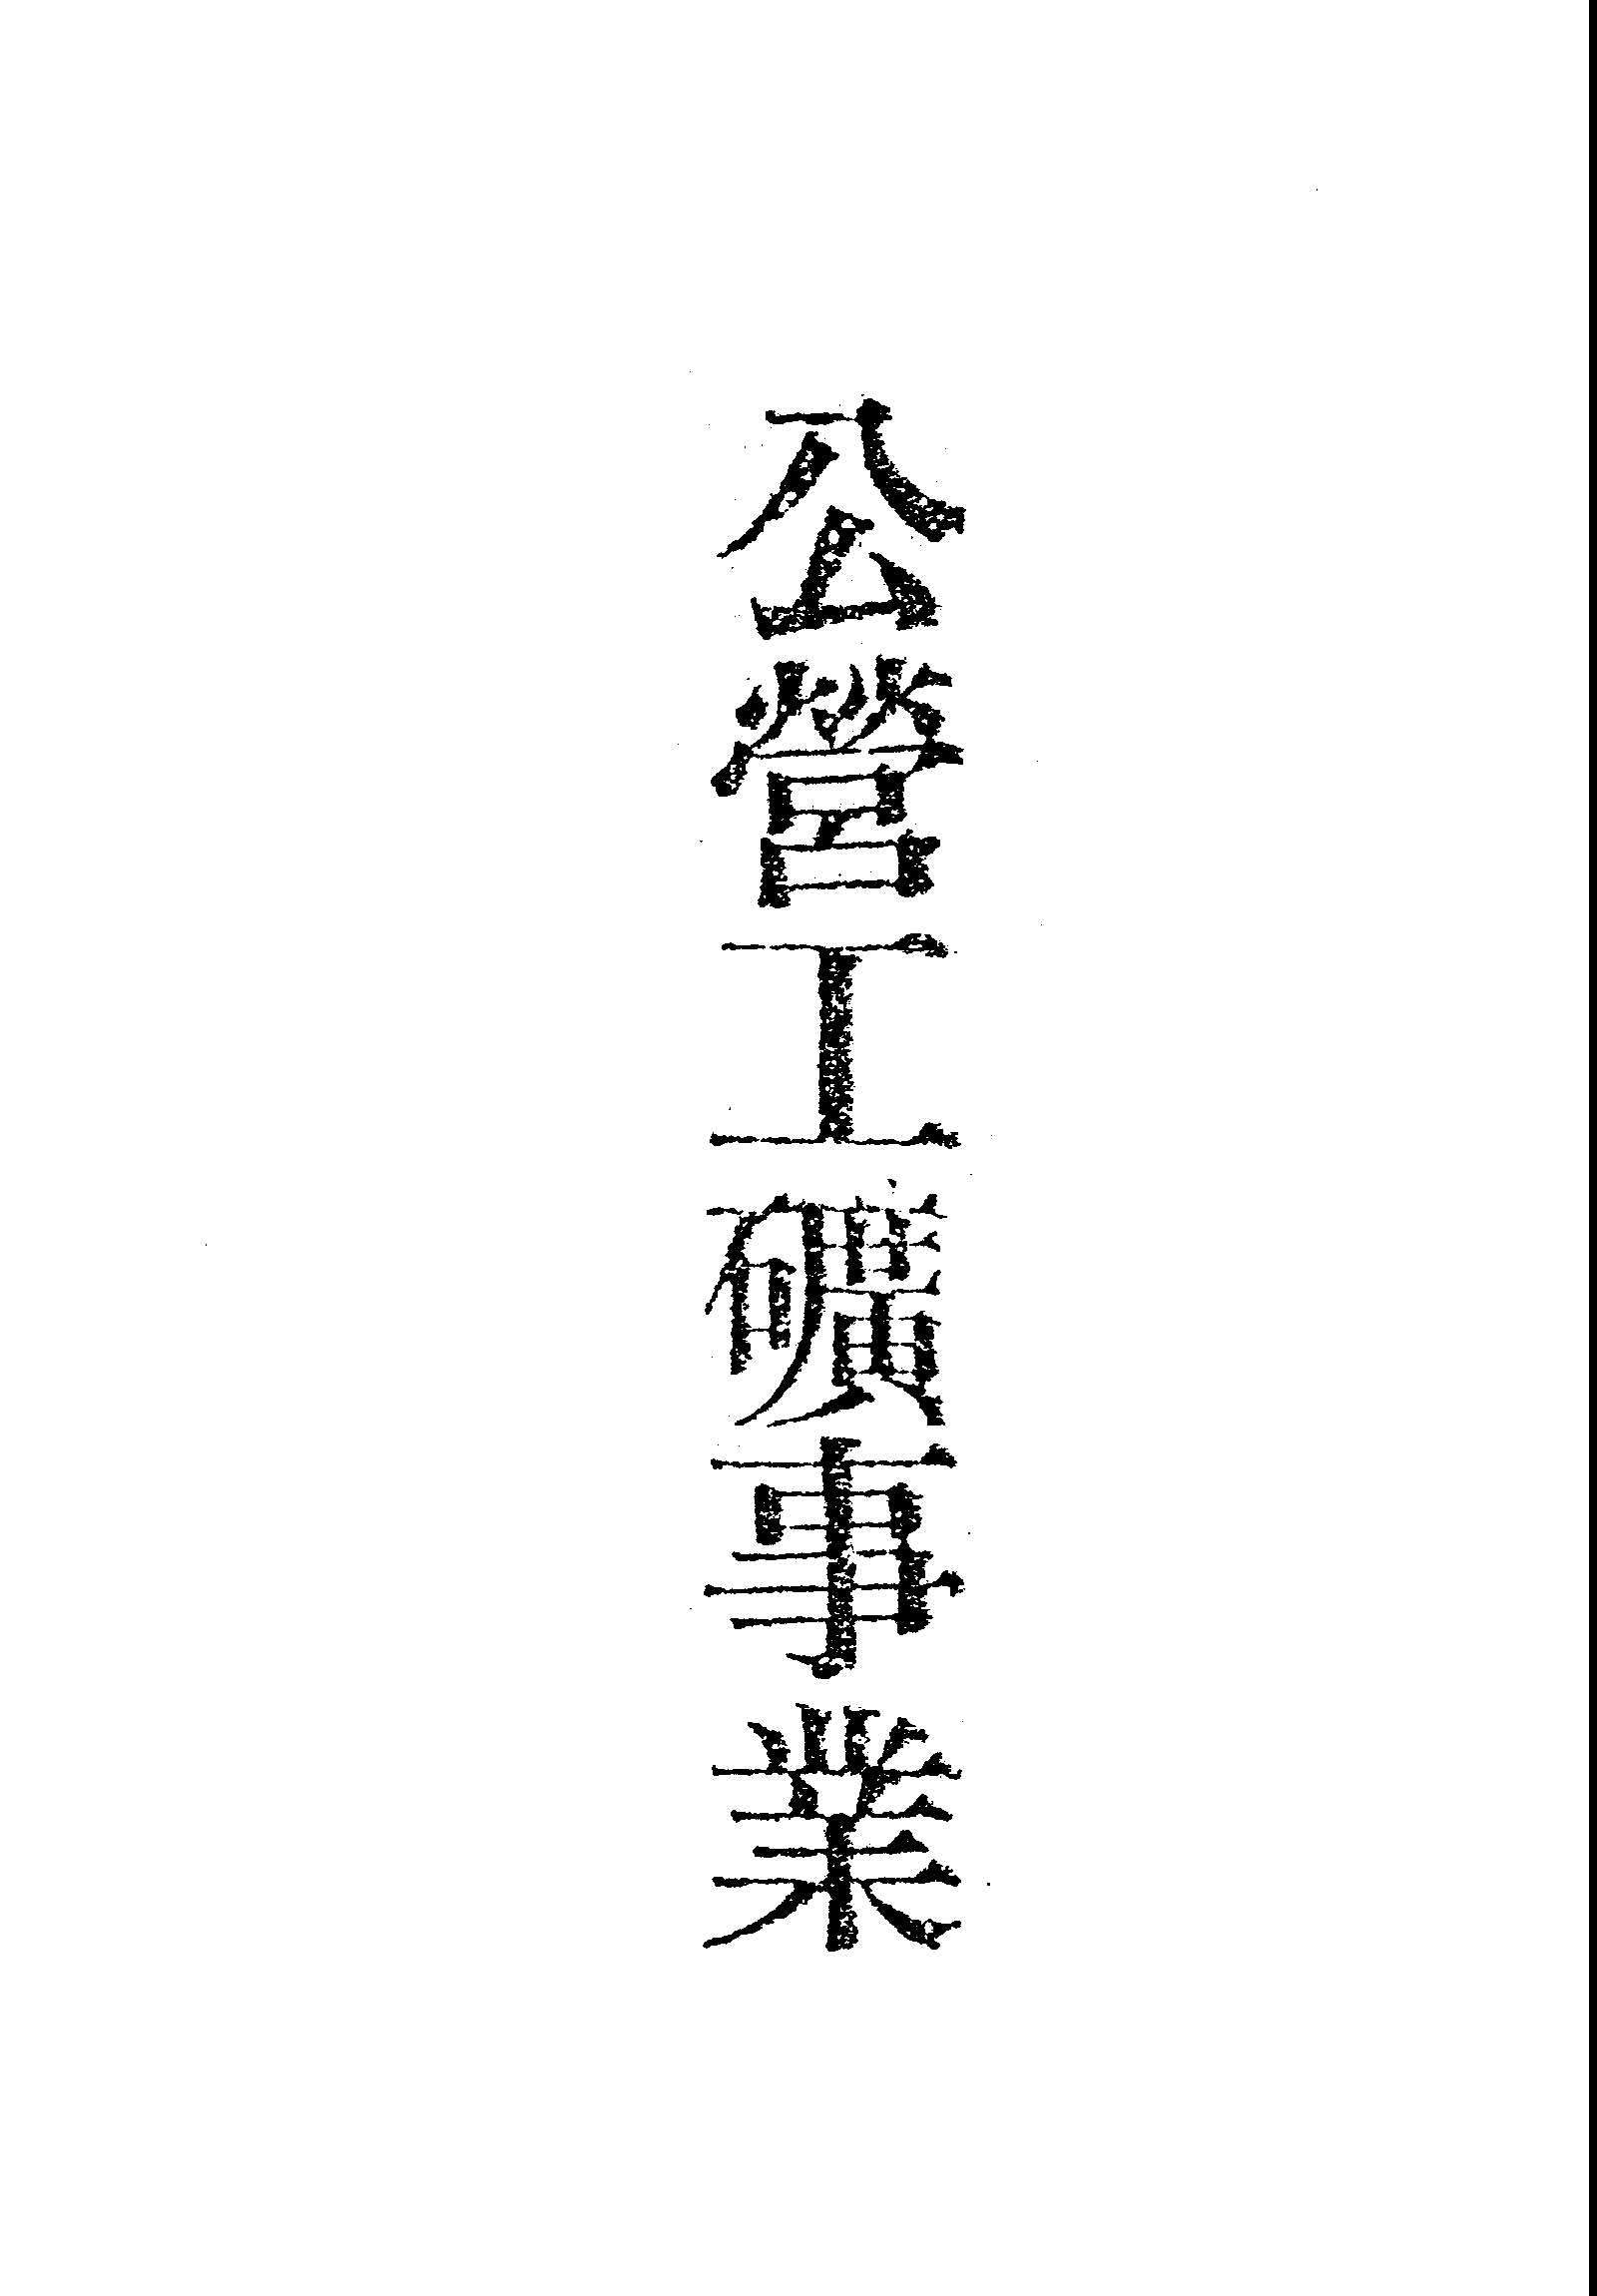 公營工礦事業